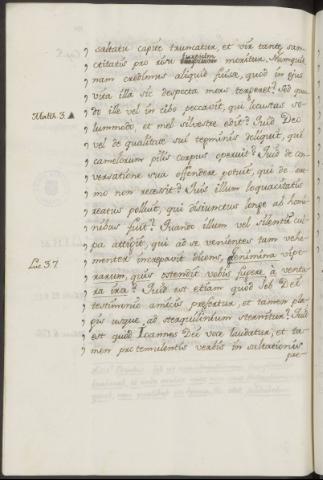 " saltatu capite truncatur, et vir tantæ san-
" ctitatis pro risu turpium moritur. Numquid-
" nam credimus aliquid fuisse, quod in ejus
" vita illa sic despecta mors tergeret? Sed quan-
" do ille vel in cibo peccavit, qui locustas so-
Matth. 3. " lummodo et mel silvestre edit? Quid Deo
" vel de qualitate sui tegminis deliquit, qui
" camelorum pilis corpus operuit? Quid de con-
" versatione sua offendere potuit, qui de ere-
" mo non recessit? Quis illum loquacitatis
" reatus polluit, qui disiunctus longe ab homi-
" nibus fuit? Quando illum vel silentii cul-
" pa attigit, qui ad se venientes tam vehe-
" menter increpavit dicens, genimina vipe-
Luc. 3. 7. " rarum, quis ostendit vobis fugere à ventu-
" ra ira? Quid est etiam quod Iob Dei
" testimonio amicus prefertur, et tamen pla-
" gis usque ad sterquilinium sternitur? Quid
" est quod Ioannes Dei voce laudatur, et ta-
" men pro temulentis verbis in saltationis
pre-